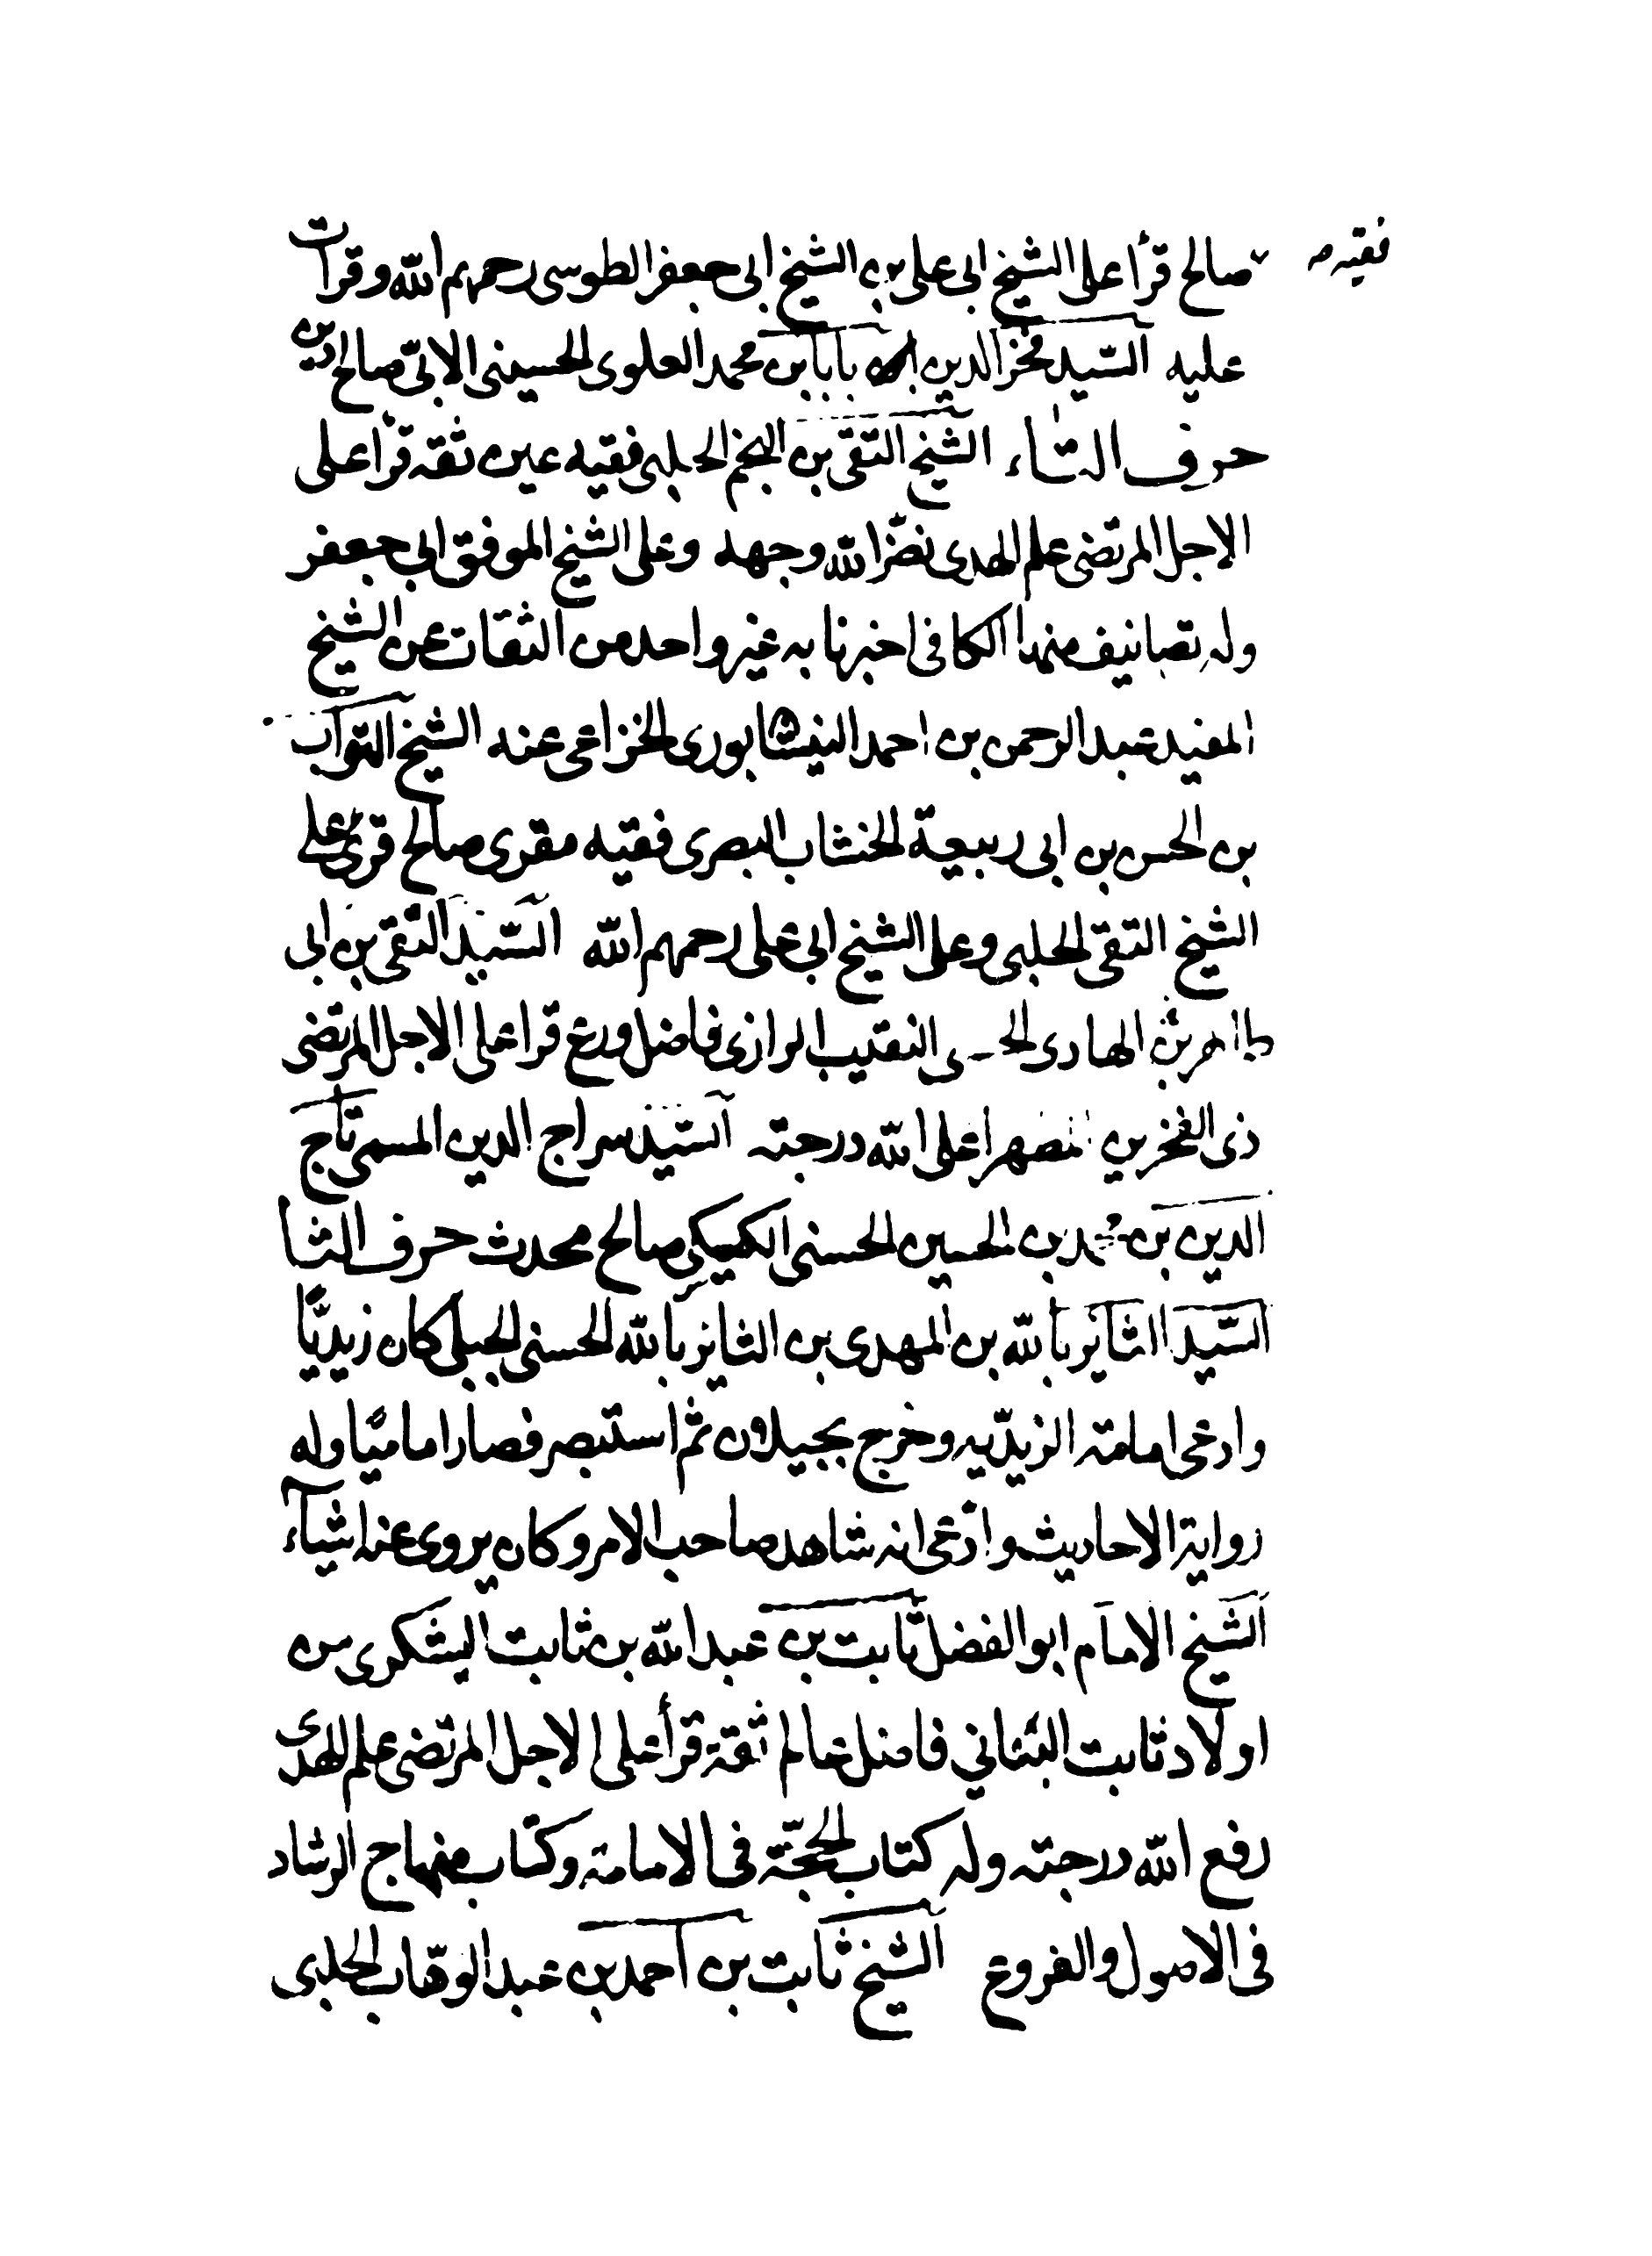 فقيه صح
صالح قرأ على الشيخ ابى على بن الشيخ ابى جعفر الطوسى رحمهم الله وقرأت
عليه السّيد فخر الدين بابا بن محمد العلوى الحسينى الآبى صالح دين
حرف التاء الشيخ التقى بن النجم الحلبى فقيه عين ثقه قرأ على
الاجل المرتضى علم الهدى نضّر الله وجهه وعلى الشيخ الموفق ابى جعفر
وله تصانيف منها الكافى اخبرنا به غير واحد من الثقات عن الشيخ
المفيد عبد الرحمن بن احمد النيشابورى الخزاعى عنه الشيخ التواب
بن الحسن بن ابى ربيعة الخشاب البصرى فقيه مقرى صالح قرئ على
الشيخ التقى الحلبى وعلى الشيخ ابى على رحمهم الله السّيد التقى بن ابى
طاهر بن الهادى النقيب الرازى فاضل ورع قرا على الاجل المرتضى
ذى الفخرين اعلى الله درجته السّيد سراج الدين المسمى تاج
الدين بن محمد بن الحسين الحسنى الكيسكى صالح محدث حرف الثا
السّيد الثائر بالله بن المهدى بن الثائر بالله الحسنى الجبلى كان زيديّا
وادعى امامة الزيديّه وخرج بجيلان ثم استبصر فصار اماميّا وله
رواية الاحاديث وادّعى انه شاهد صاحب الامر وكان يروى عنه اشياء
الشيخ الامام ابو الفضل ثابت بن عبد الله بن ثابت اليشكرى من
اولاد ثابت البنانى فاضل عالم ثقة قرأ على الاجل المرتضى علم الهدى
رفع الله درجته وله كتاب الحجّة فى الامامة وكتاب منهاج الرشاد
فى الاصول والفروع الشيخ ثابت بن احمد بن عبد الوهّاب الحلبى